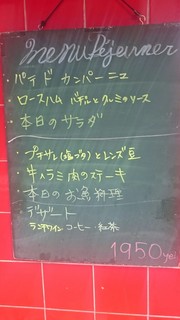 menu Déjeuner
・パテ ド カンパーニュ
・ロースハム バジルとクルミのソース
・本日のサラダ
・プチサレ(塩ブタ)とレンズ豆
・牛ハラミ肉のステーキ
・本日のお魚料理
・デザート
コーヒー・紅茶
1950yen